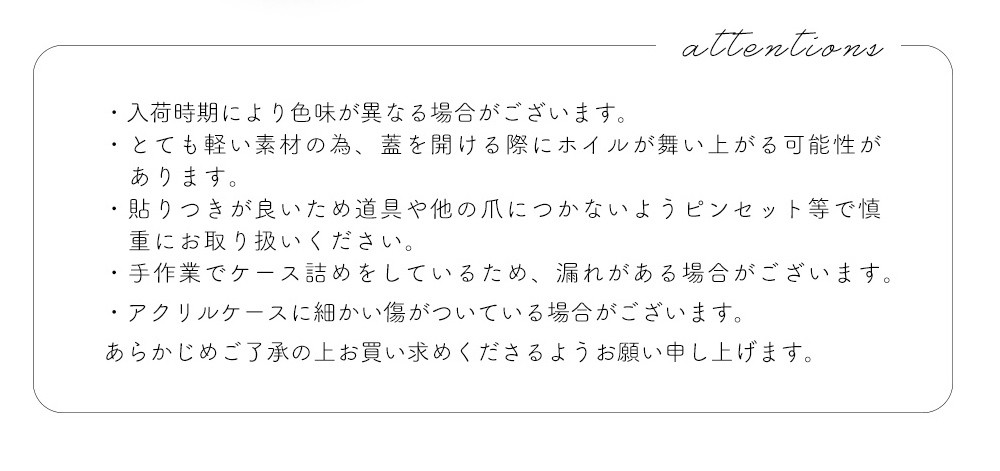 attentions
・入荷時期により色味が異なる場合がございます。
・とても軽い素材の為、蓋を開ける際にホイルが舞い上がる可能性が
あります。
・貼りつきが良いため道具や他の爪につかないようピンセット等で慎
重にお取り扱いください。
・手作業でケース詰めをしているため、漏れがある場合がございます。
・アクリルケースに細かい傷がついている場合がございます。
あらかじめご了承の上お買い求めくださるようお願い申し上げます。